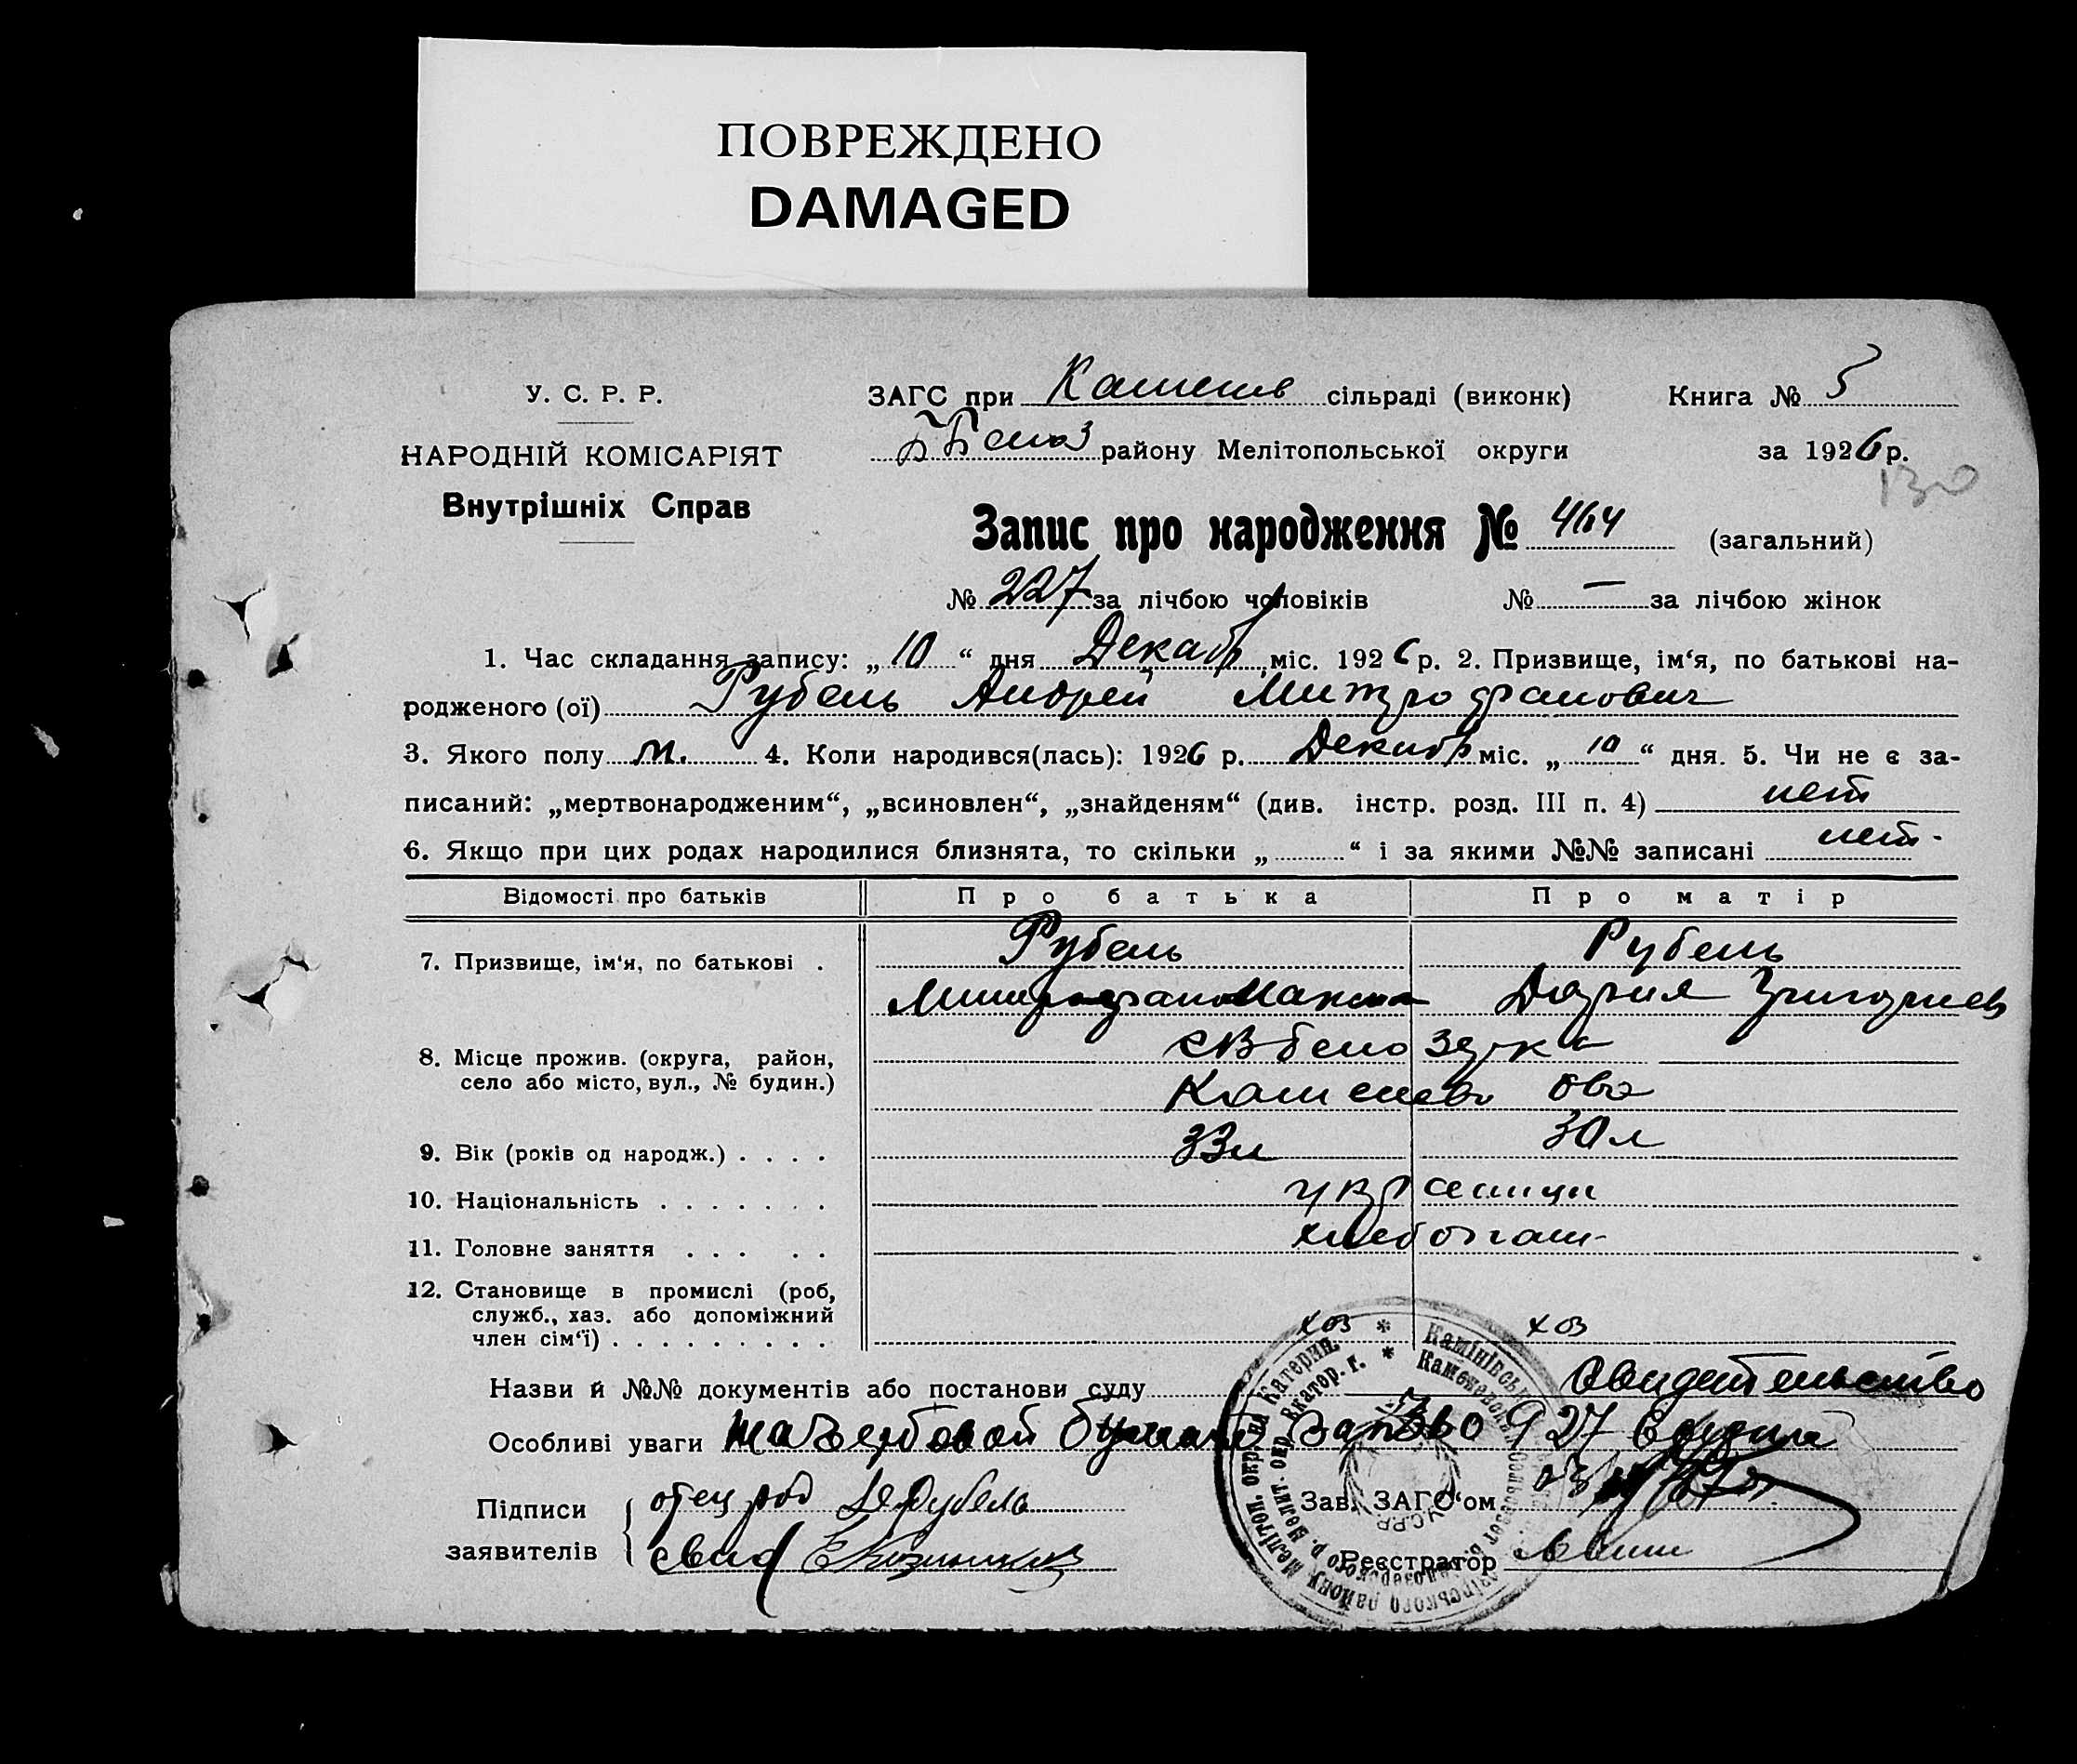 ПОВРЕЖДЕНО
DAMAGED
У. С. Р. Р.
НАРОДНІЙ КОМІСАРІЯТ
Внутрішніх Справ
ЗАГС при Каменев сільраді (виконк) Книга № 5
району Мелітопольської округи за 1926 р.
130
Запис про народження № 464 (загальний)
№ 227 за лічбою чоловіків № — за лічбою жінок
1. Час складання запису: „10“ дня Декабр міс. 1926 р. 2. Призвище, ім‘я, по батькові на-
родженого (ої) Рубель Андрей Митрофанович
3. Якого полу м. 4. Коли народився(лась): 1926 р. Декабр міс. „10“ дня. 5. Чи не є за-
писаний: „мертвонародженим“, „всиновлен“, „знайденям“ (див. інстр. розд. III п. 4) нет
6. Якщо при цих родах народилися близнята, то скільки „..........“ і за якими №№ записані нет
Відомості про батьків Про батька Про матір
7. Призвище, ім‘я, по батькові . Рубель Рубель
Митрофан Дария Григориев
8. Місце прожив. (округа, район,
село або місто, вул., № будин.)
9. Вік (років од народж.) . . . . 33 л 30 л
10. Національність . . . . . . . украинцы
11. Головне заняття . . . . . хлебопаш
12. Становище в промислі (роб,
служб., хаз. або допоміжний
член сім‘ї) . . . . . . . . . хоз хоз
Назви й №№ документів або постанови суду Свидетельство
Особливі уваги на гербовой бумаге за № 927
Підписи
заявителів
отец Рубель
свид
Зав. ЗАГС‘ом
Реєстратор